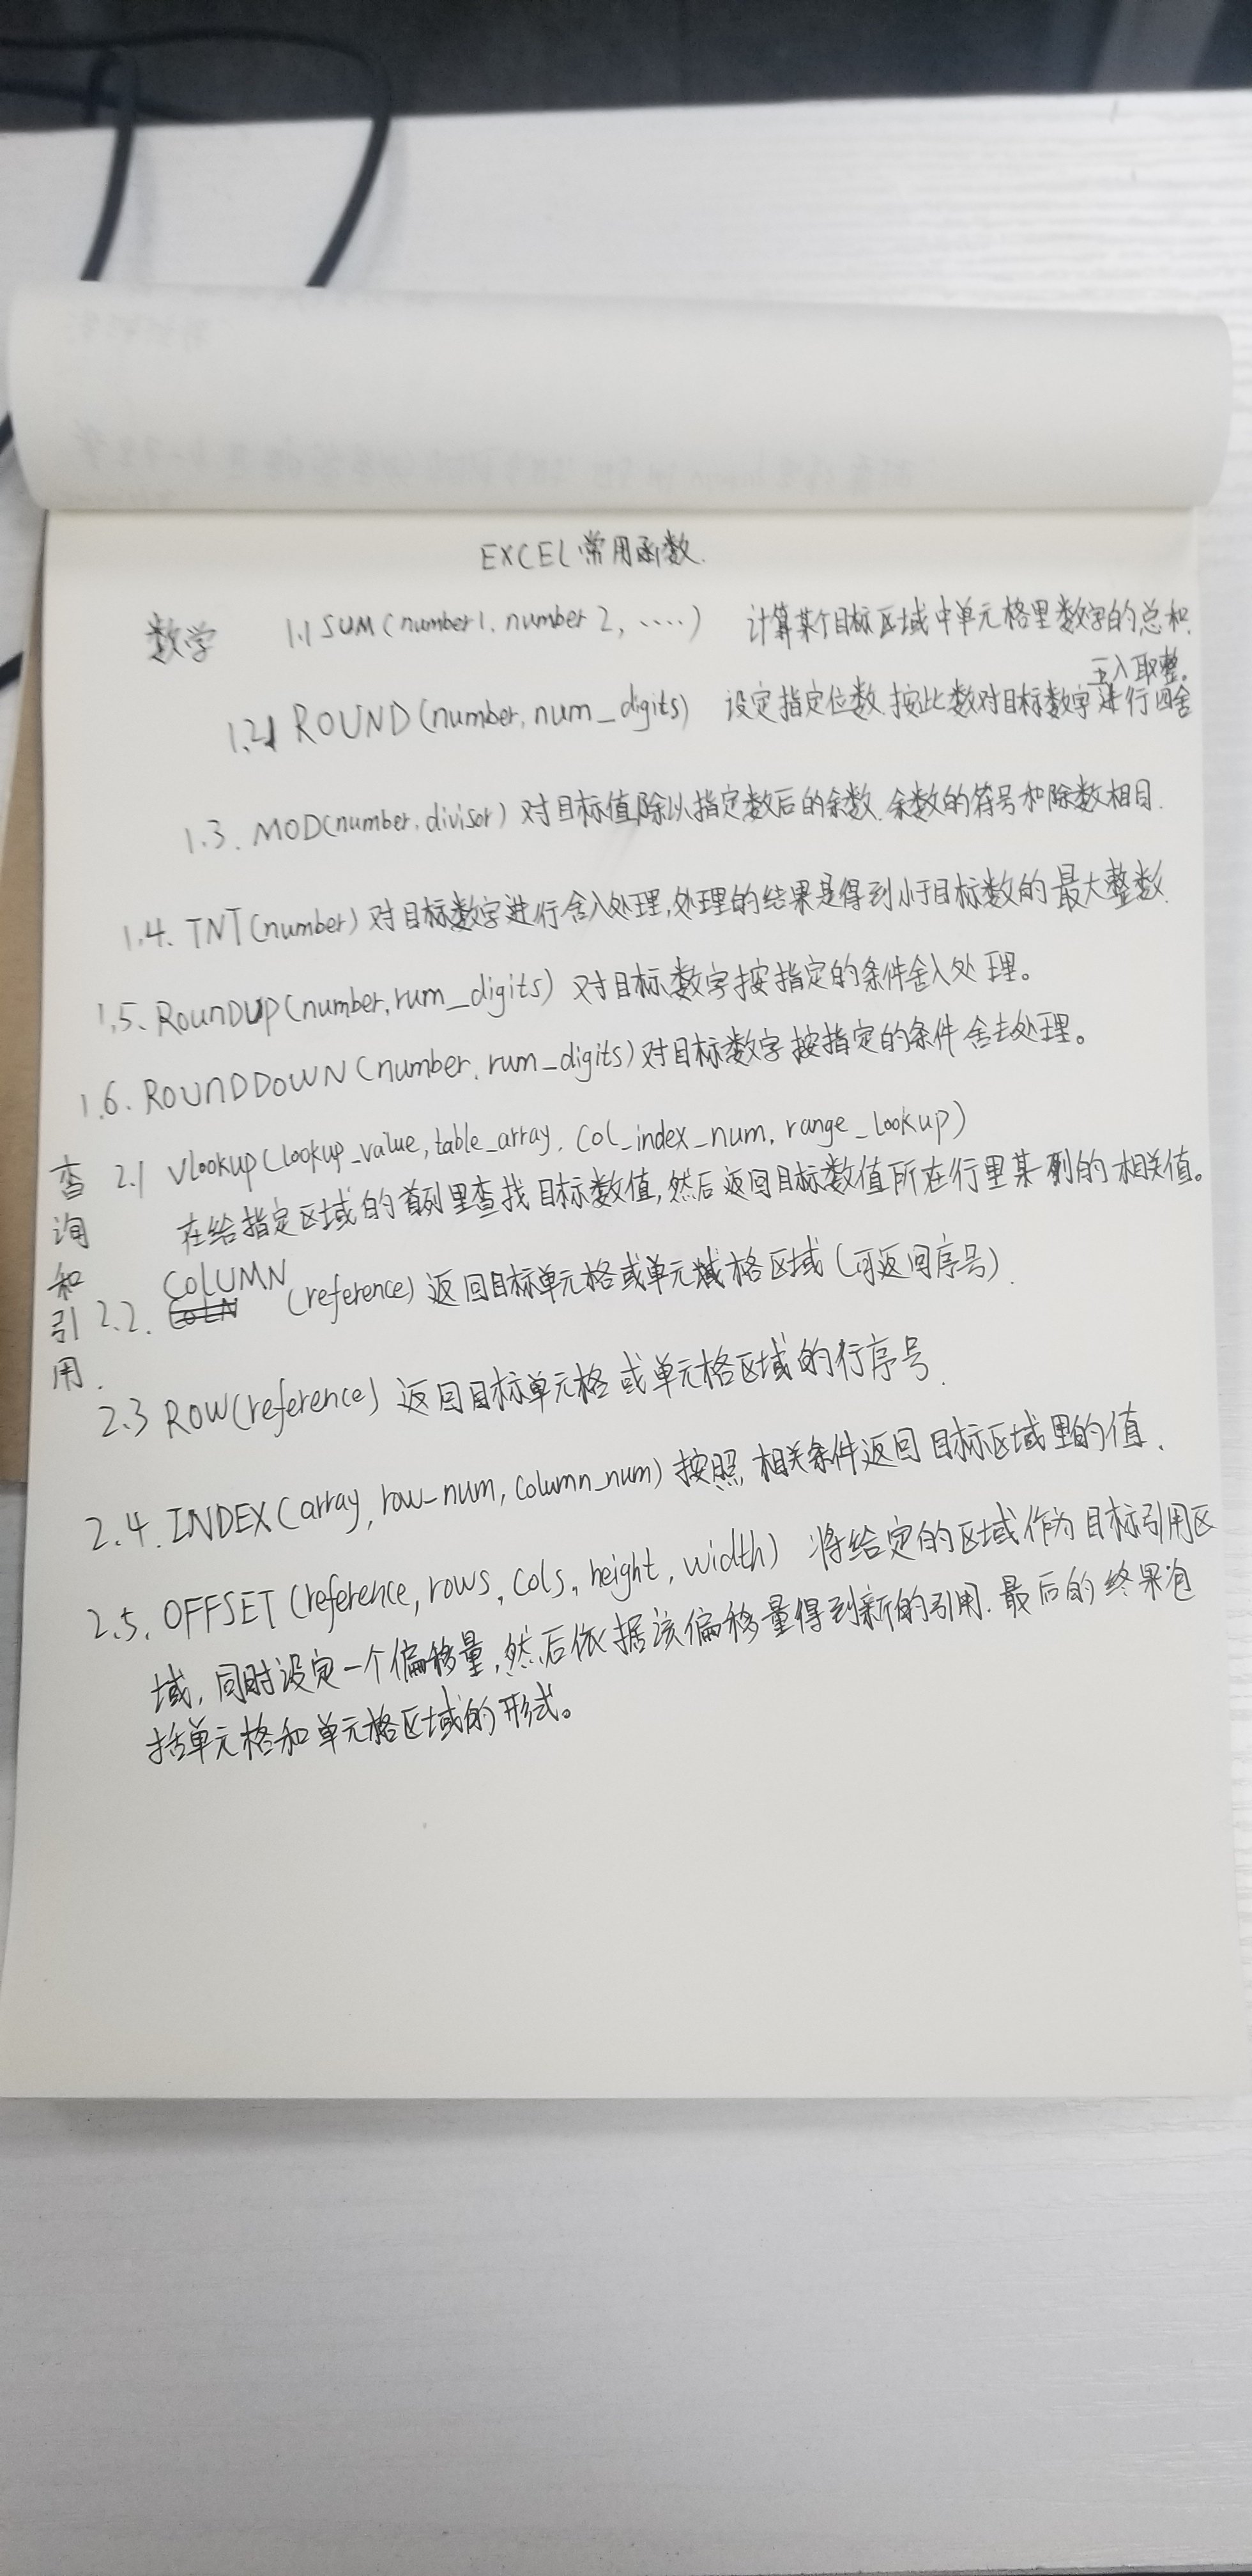 EXCEL常用函数.
数学 1.1 SUM(number1, number2, ····) 计算某个目标区域中单元格里数字的总和.
1.2 ROUND(number, num_digits) 设定指定位数,按此数对目标数字进行四舍
五入取整。
1.3. MOD(number, divisor) 对目标值除以指定数后的余数,余数的符号和除数相目.
1.4. TNT(number) 对目标数字进行舍入处理,处理的结果是得到小于目标数的最大整数.
1.5. RounDUP(number, rum_digits) 对目标数字按指定的条件舍入处理。
1.6. ROUNDDOWN(number, rum_digits) 对目标数字按指定的条件舍去处理。
查询和引用.
2.1 Vlookup(lookup_value, table_array, col_index_num, range_lookup)
在给指定区域的首列里查找目标数值,然后返回目标数值所在行里某列的相关值。
2.2. COLUMN (reference) 返回目标单元格或单元格区域(可返回序号).
2.3 ROW(reference) 返回目标单元格或单元格区域的行序号.
2.4. INDEX(array, row_num, column_num) 按照相关条件返回目标区域里的值.
2.5. OFFSET(reference, rows, cols, height, width) 将给定的区域作为目标引用区
域,同时设定一个偏移量,然后依据该偏移量得到新的引用.最后的终果包
括单元格和单元格区域的形式。